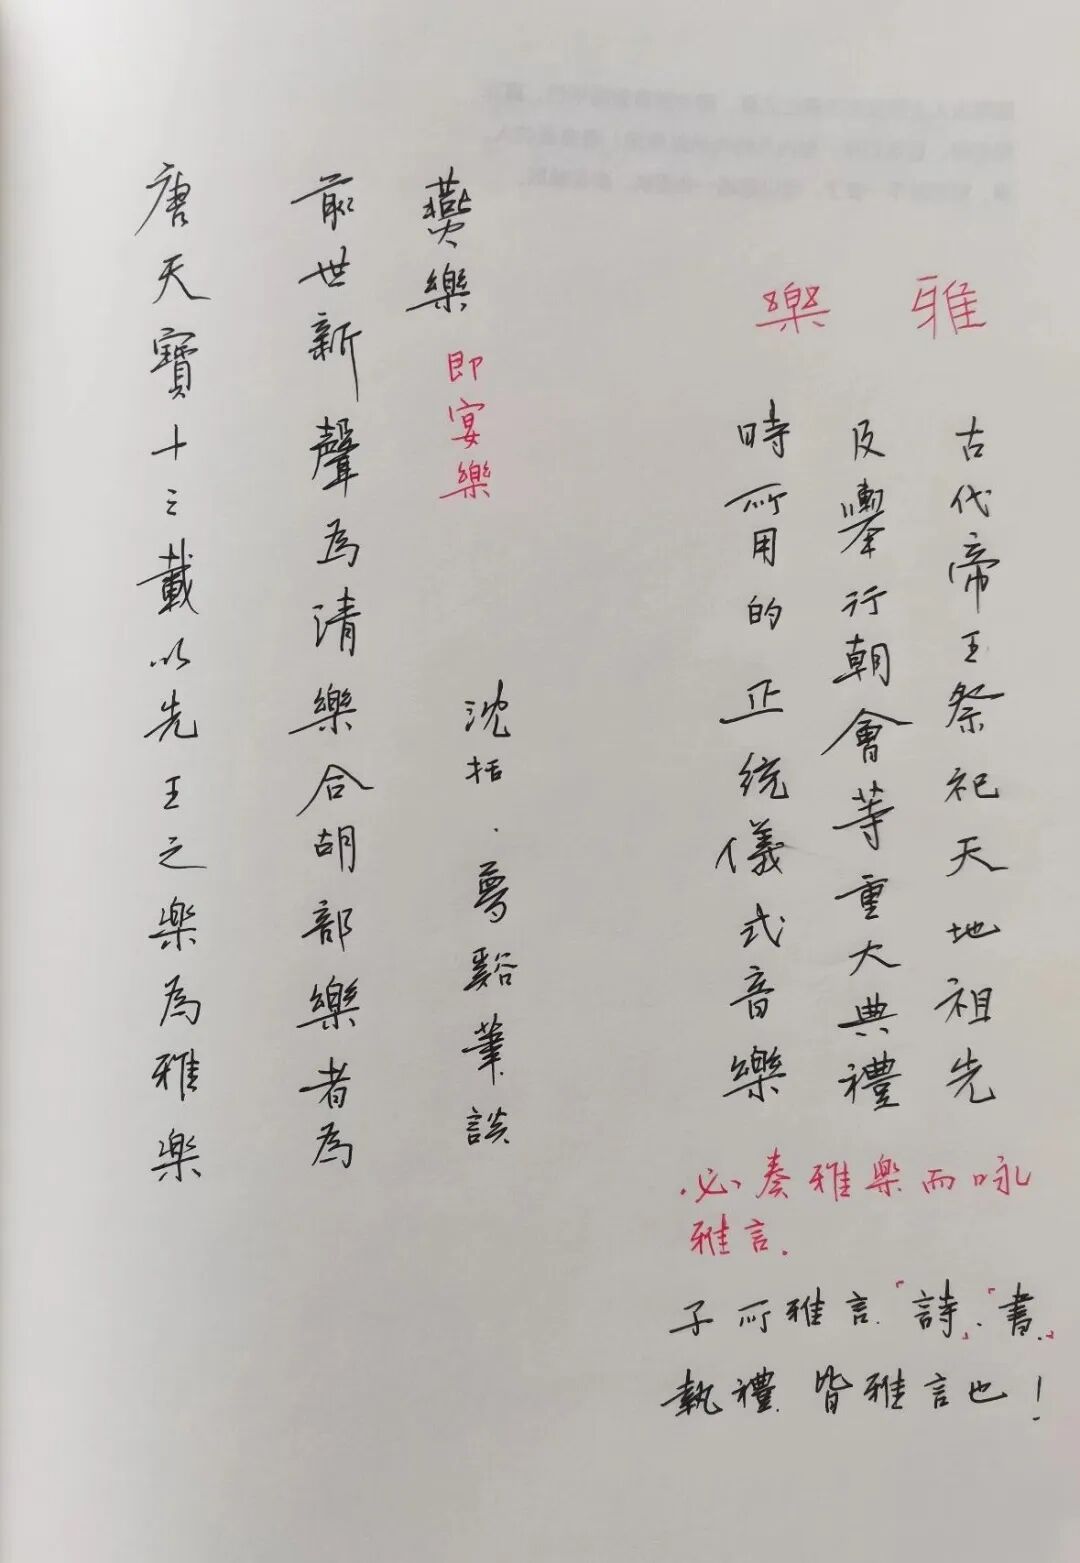 雅樂
古代帝王祭祀天地祖先
及舉行朝會等重大典禮
時所用的正統儀式音樂
必奏雅楽而咏
雅言.
子所雅言.「詩」.「書.」
執禮.皆雅言也!
唐天寶十三載以先王之楽為雅楽
前世新聲為清樂合胡部樂者為
燕樂 即宴樂
沈括·夢谿筆談